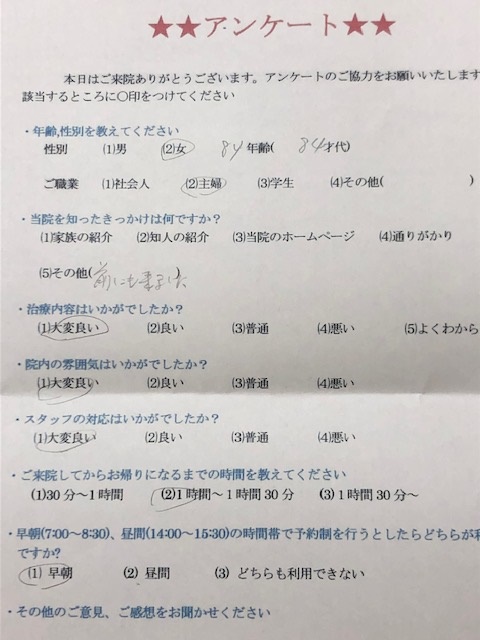 ★★アンケート★★
本日はご来院ありがとうございます。アンケートのご協力をお願いいたします
該当するところに〇印をつけてください
・年齢,性別を教えてください
性別 (1)男 (2)女 84 年齢( 84才代)
ご職業 (1)社会人 (2)主婦 (3)学生 (4)その他( )
・当院を知ったきっかけは何ですか?
(1)家族の紹介 (2)知人の紹介 (3)当院のホームページ (4)通りがかり
(5)その他(前にも来ました)
・治療内容はいかがでしたか?
(1)大変良い (2)良い (3)普通 (4)悪い (5)よくわから
・院内の雰囲気はいかがでしたか?
(1)大変良い (2)良い (3)普通 (4)悪い
・スタッフの対応はいかがでしたか?
(1)大変良い (2)良い (3)普通 (4)悪い
・ご来院してからお帰りになるまでの時間を教えてください
(1)30分～1時間 (2)1時間～1時間30分 (3)1時間30分～
・早朝(7:00～8:30)、昼間(14:00～15:30)の時間帯で予約制を行うとしたらどちらが利
ですか?
(1) 早朝 (2) 昼間 (3) どちらも利用できない
・その他のご意見、ご感想をお聞かせください